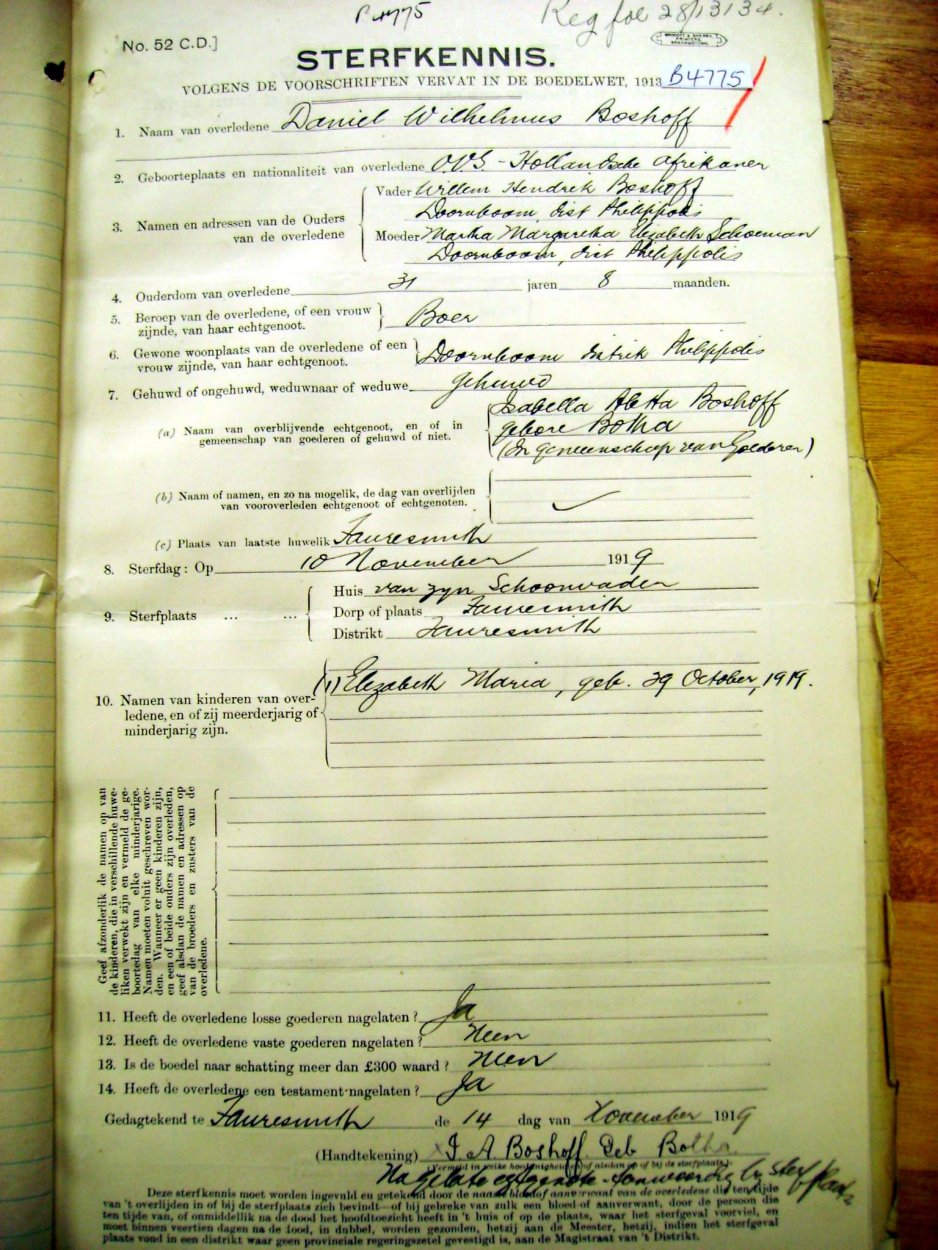 B4775
Reg fol 28/13134.
No. 52 C.D.]
STERFKENNIS.
VOLGENS DE VOORSCHRIFTEN VERVAT IN DE BOEDELWET, 1913 B4775
1. Naam van overledene Daniel Wilhelmus Boshoff
2. Geboorteplaats en nationaliteit van overledene O.V.S. - Hollandsche Afrikaner
3. Namen en adressen van de Ouders van de overledene
Vader Willem Hendrik Boshoff
Doornboom, dist Philippolis
Moeder Martha Margaretha Elizabeth Schoeman
Doornboom, dist Philippolis
4. Ouderdom van overledene 31 jaren 8 maanden.
5. Beroep van de overledene, of een vrouw
zijnde, van haar echtgenoot. Boer
6. Gewone woonplaats van de overledene of een
vrouw zijnde, van haar echtgenoot. Doornboom distrik Philippolis
7. Gehuwd of ongehuwd, weduwnaar of weduwe gehuwd
(a) Naam van overblijvende echtgenoot, en of in
gemeenschap van goederen of gehuwd of niet.
Isabella Aletta Boshoff
gebore Botha
(In gemeenschap van Goederen)
(b) Naam of namen, en zo na mogelik, de dag van overlijden
van vooroverleden echtgenoot of echtgenoten.
(c) Plaats van laatste huwelik Fauresmith
8. Sterfdag: Op 10 November 1919
9. Sterfplaats ... ...
Huis van zyn Schoonvader
Dorp of plaats Fauresmith
Distrikt Fauresmith
10. Namen van kinderen van over-
ledene, en of zij meerderjarig of
minderjarig zijn.
(1) Elizabeth Maria, geb. 29 October, 1919.
Geef afzonderlik de namen op van
de kinderen, die in verschillende huwe-
liken verwekt zijn en vermeld de ge-
boortedag van elke minderjarige.
Namen moeten voluit geschreven wor-
den. Wanneer er geen kinderen zijn,
en een of beide ouders zijn overleden,
geef alsdan de namen en adressen op
van de broeders en zusters van de
overledene.
11. Heeft de overledene losse goederen nagelaten? Ja
12. Heeft de overledene vaste goederen nagelaten? Neen
13. Is de boedel naar schatting meer dan £300 waard? Neen
14. Heeft de overledene een testament nagelaten? Ja
Gedagtekend te Fauresmith de 14 dag van November 1919
(Handtekening) I A Boshoff Geb Botha
Nagelate eggenote - aanwezig by sterfplaats
Deze sterfkennis moet worden ingevuld en getekend door de naaste bloed of aanverwant van de overledene die ten tijde
van 't overlijden in of bij de sterfplaats zich bevindt—of bij gebreke van zulk een bloed of aanverwant, door de persoon die
ten tijde van, of onmiddellik na de dood het hoofdtoezicht heeft in 't huis of op de plaats, waar het sterfgeval voorviel, en
moet binnen veertien dagen na de dood, in dubbel, worden gezonden, hetzij aan de Meester, hetzij, indien het sterfgeval
plaats vond in een distrikt waar geen provinciale regeringszetel gevestigd is, aan de Magistraat van 't Distrikt.